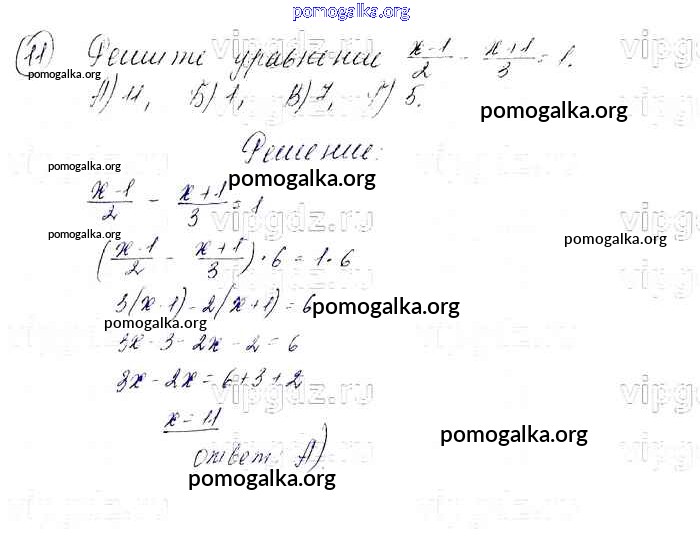 pomogalka.org
11 Решите уравнение (x-1)/2 - (x+1)/3 = 1.
pomogalka.org
А) 11, Б) 1, В) 7, Г) 5.
pomogalka.org
Решение:
pomogalka.org
pomogalka.org
(x-1)/2 - (x+1)/3 = 1
vipgdz.ru
pomogalka.org
pomogalka.org
((x-1)/2 - (x+1)/3) · 6 = 1 · 6
3(x-1) - 2(x+1) = 6
pomogalka.org
pomogalka.org
3x - 3 - 2x - 2 = 6
3x - 2x = 6 + 3 + 2
vipgdz.ru
x = 11
pomogalka.org
ответ: А)
pomogalka.org